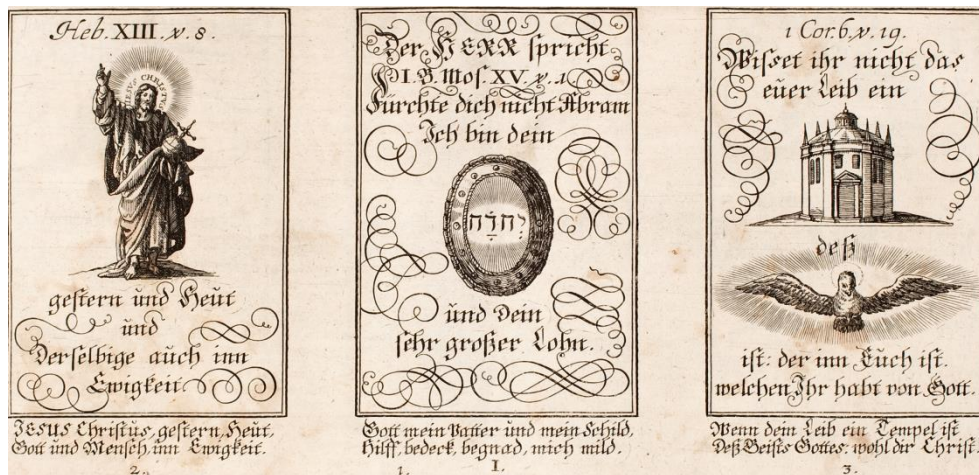 Heb. XIII. v. 8.
JESUS CHRISTUS
gestern und Heut
und
Derselbige auch inn
Ewigkeit.
JESUS Christus, gestern, Heut,
Gott und Mensch, inn Ewigkeit.
2.
Der HERR spricht
I. B. Mos. XV. v. 1.
Fürchte dich nicht Abram
Ich bin dein
יהוה
und Dein
sehr großer Lohn.
Gott mein Vatter und mein Schild,
Hilff, bedeck, begnad, mich mild.
1. I.
1 Cor. 6, v. 19.
Wisset ihr nicht das
euer Leib ein
deß
ist: der inn Euch ist.
welchen Ihr habt von Gott.
Wenn dein Leib ein Tempel ist
Deß Geists Gottes: wohl dir Christ
3.